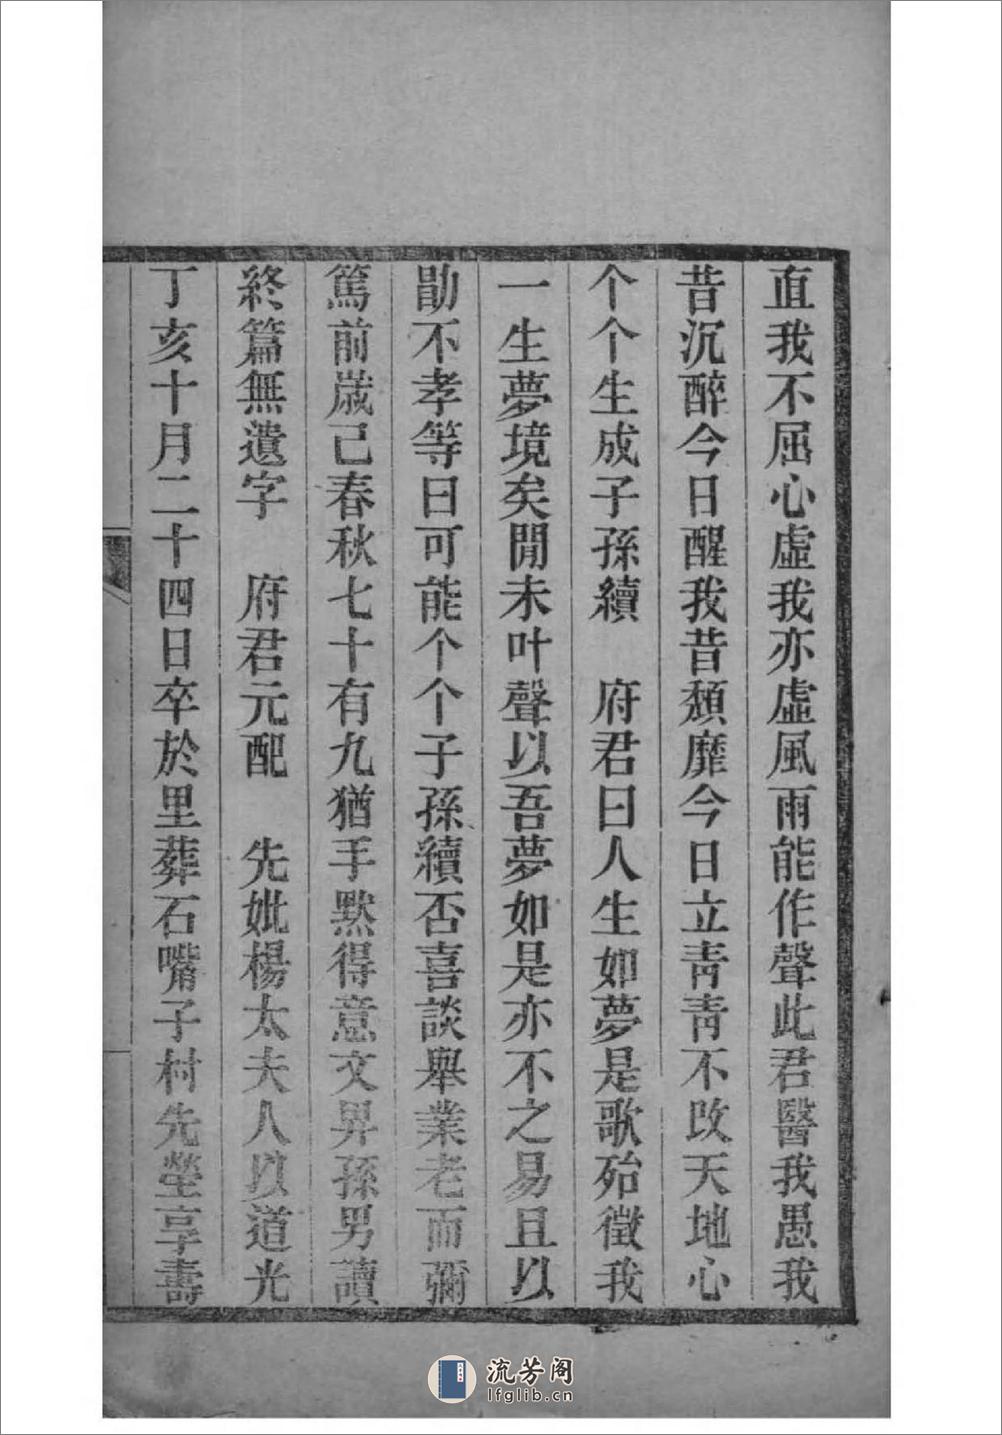 直我不屈心虛我亦虛風雨能作聲此君醫我愚我
昔沉醉今日醒我昔頹靡今日立靑靑不改天地心
个个生成子孫續　府君曰人生如夢是歌殆徵我
一生夢境矣閒未叶聲以吾夢如是亦不之易且以
勖不孝等曰可能个个子孫續否喜談舉業老而彌
篤前歲己春秋七十有九猶手默得意文畀孫男讀
終篇無遺字　府君元配　先妣楊太夫人以道光
丁亥十月二十四日卒於里葬石嘴子村先塋享壽
流芳阁
lfglib.cn